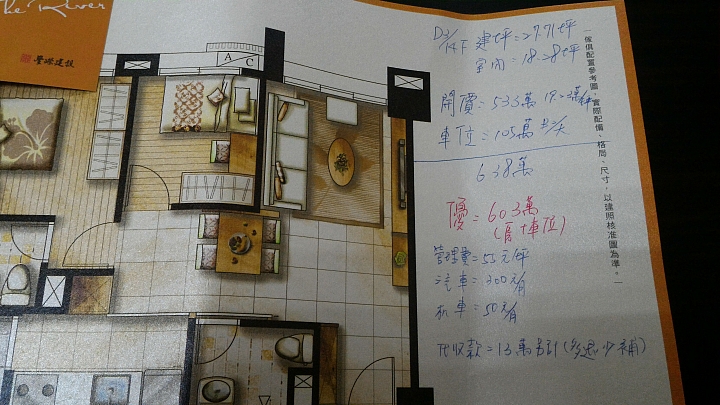 The River
豐澤建設
A
C
D3/14F 建坪=27.71坪
室內=18.28坪
開價=533萬 19.23萬/坪
車位=105萬
638萬
優=603萬
(含車位)
管理費=55元/坪
汽車=300元/月
机車=50元/月
代收款=13萬另計(多退少補)
—傢俱配置參考圖,實際配備、格局、尺寸,以建照核准圖為準。—